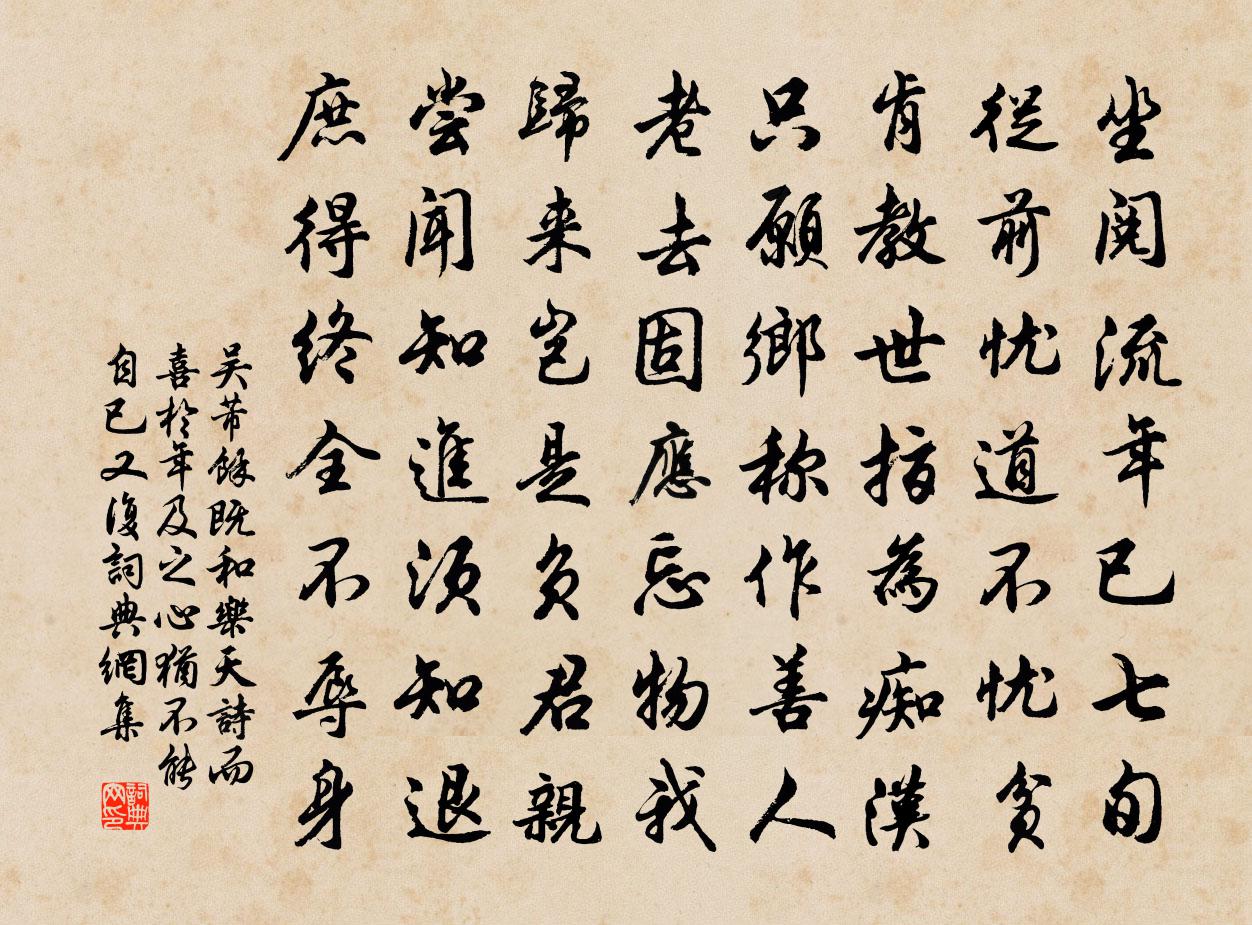 坐閱流年已七旬
從前忧道不忧貧
肯教世指為痴漢
只願鄉称作善人
老去固應忘物我
歸来豈是負君親
嘗聞知進須知退
庶得終全不辱身
吴芾餘既和樂天詩而
喜於年及之心猶不能
自已又復詞典網集
詞典
网